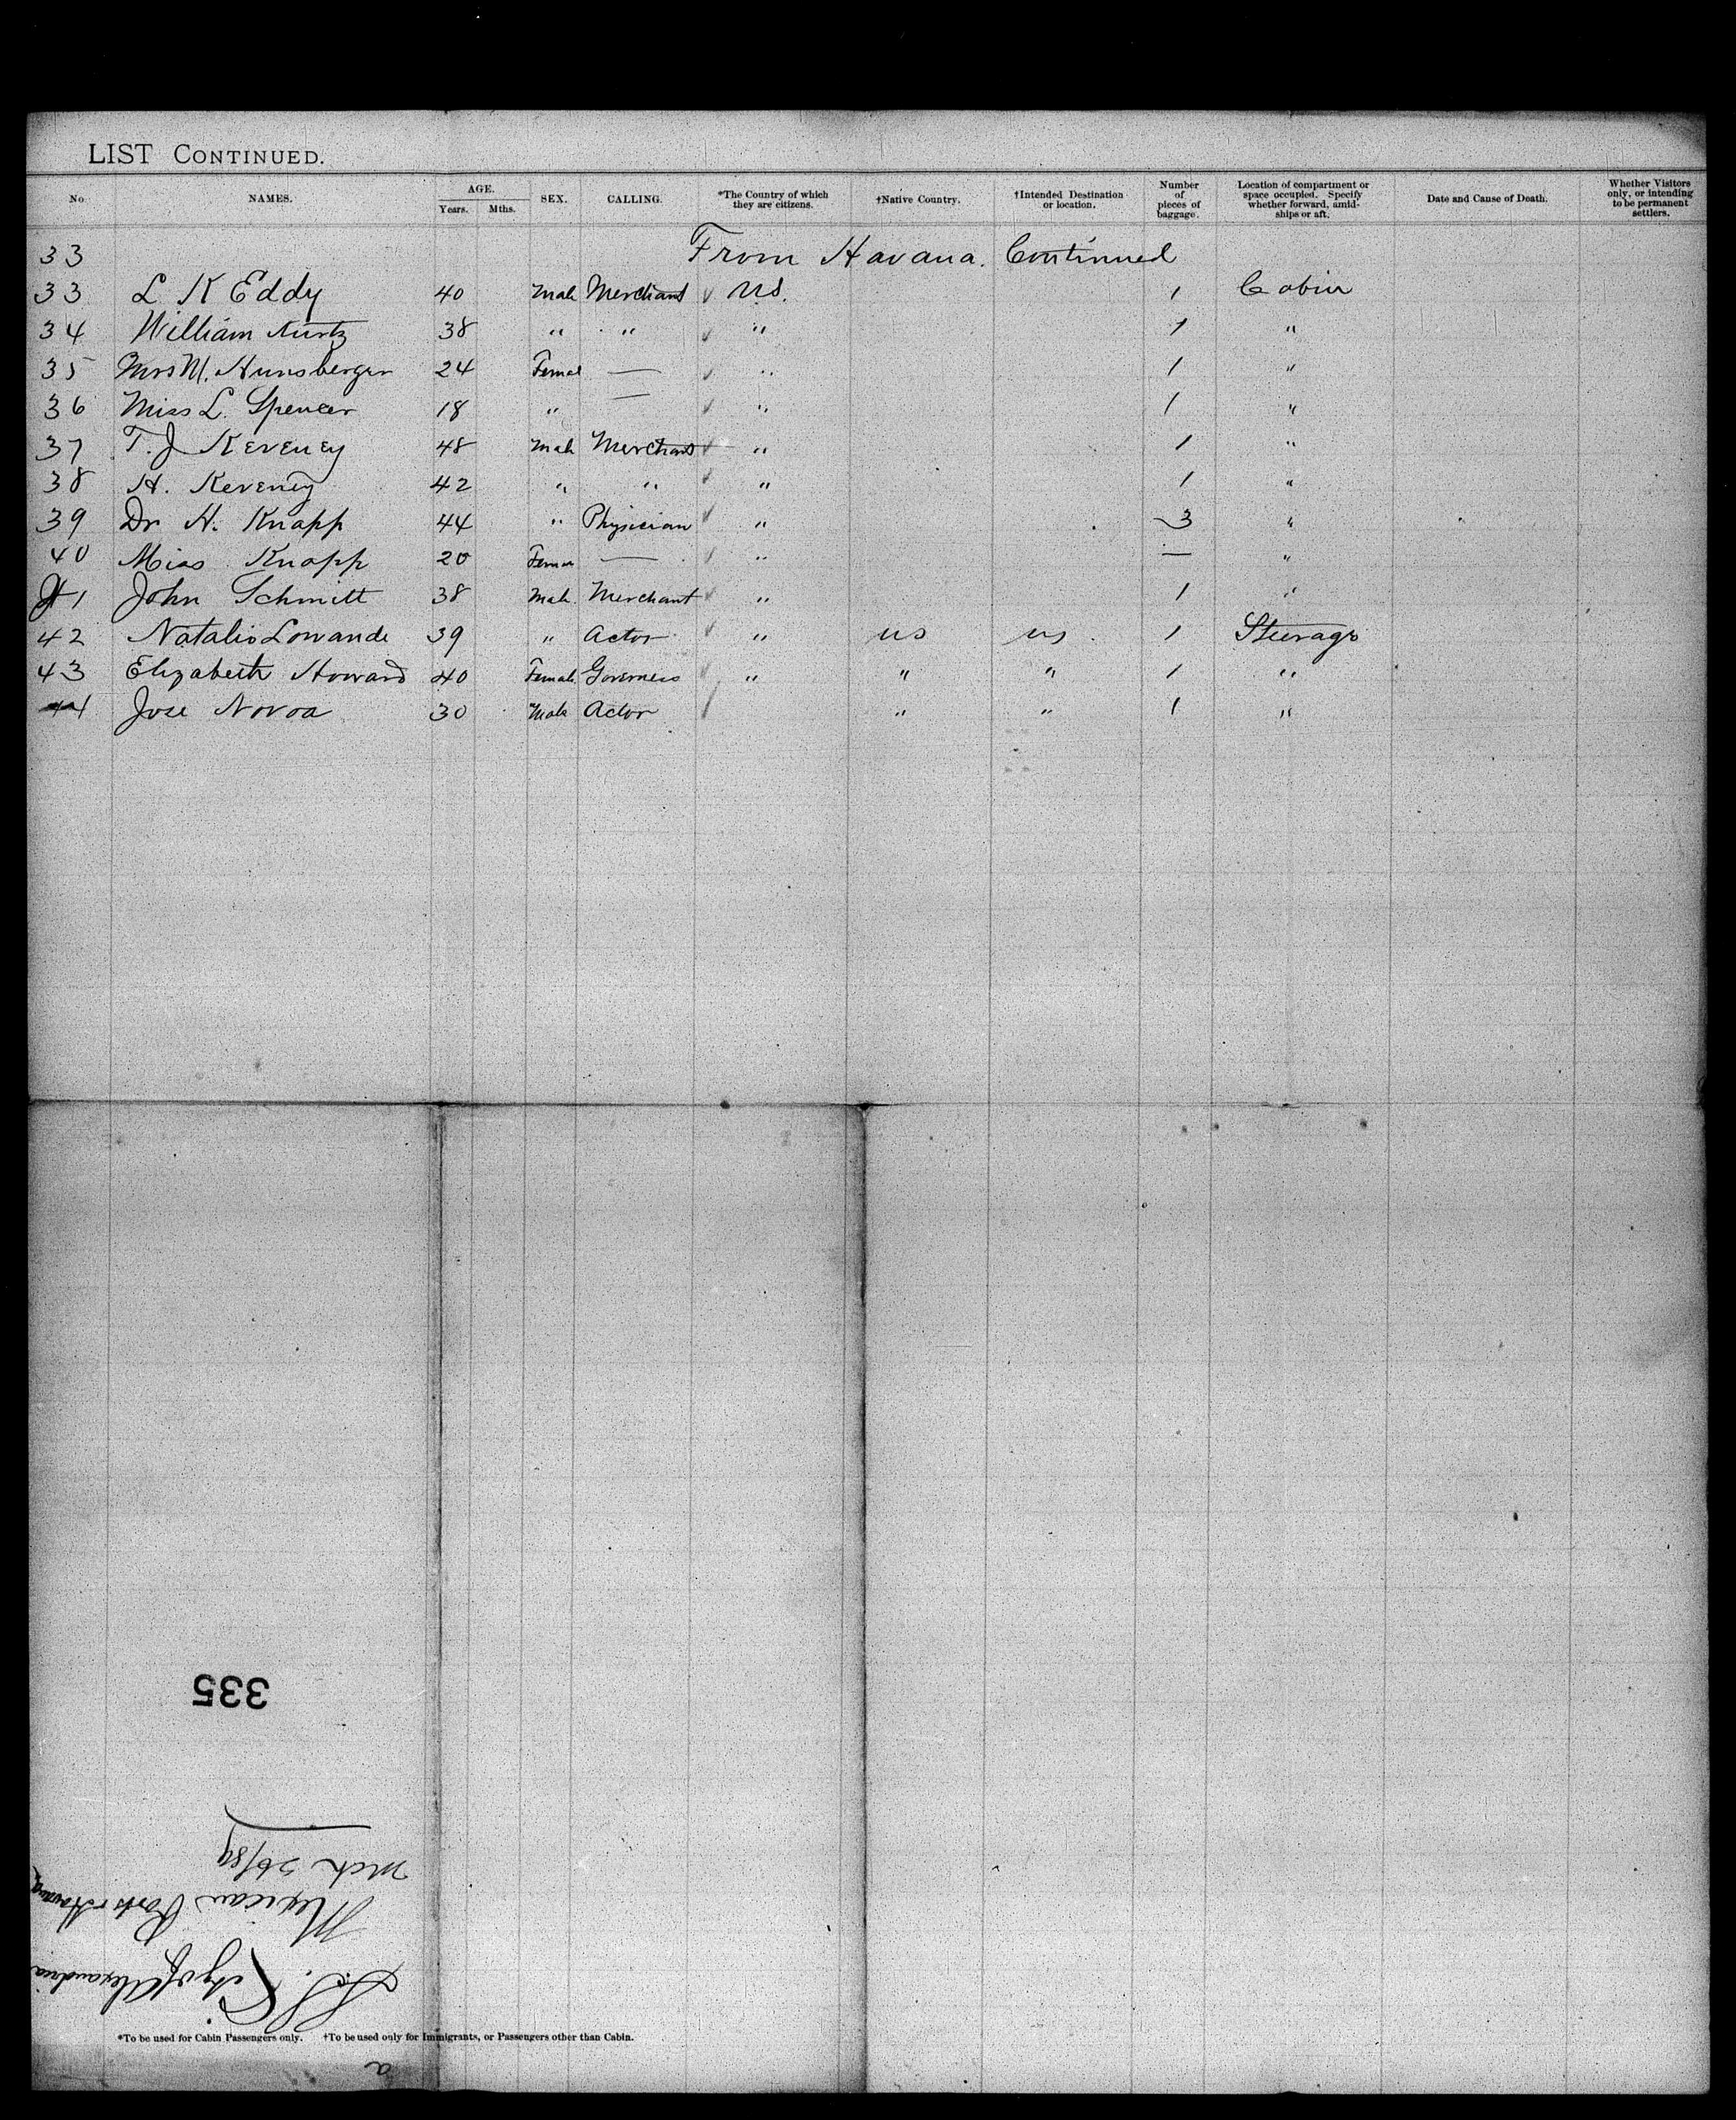 LIST CONTINUED.
No NAMES. AGE. Years. Mths. SEX. CALLING. *The Country of which they are citizens. †Native Country. †Intended Destination or location. Number of pieces of baggage. Location of compartment or space occupied. Specify whether forward, amid-ships or aft. Date and Cause of Death. Whether Visitors only, or intending to be permanent settlers.
33 From Havana. Continued
33 L K Eddy 40 Male Merchant ✓ U.S. 1 Cabin
34 William Kurtz 38 " " ✓ " 1 "
35 Mrs M. Hunsberger 24 Femal — ✓ " 1 "
36 Miss L. Spencer 18 " — ✓ " 1 "
37 T. J Keveney 48 Male Merchant ✓ " 1 "
38 H. Keveney 42 " " ✓ " 1 "
39 Dr H. Knapp 44 " Physician ✓ " 3 "
40 Miss Knapp 20 Femal — ✓ " — "
41 John Schmitt 38 Male Merchant ✓ " 1 "
42 Natalio Lowande 39 " Actor ✓ " us us 1 Steerage
43 Elizabeth Howard 40 Female Governess ✓ " " " 1 "
44 Jose Novoa 30 Male Actor / " " 1 "
335
Mch 26/89
Mexican Ports & Havana
S.S. City of Alexandria
*To be used for Cabin Passengers only. †To be used only for Immigrants, or Passengers other than Cabin.
a